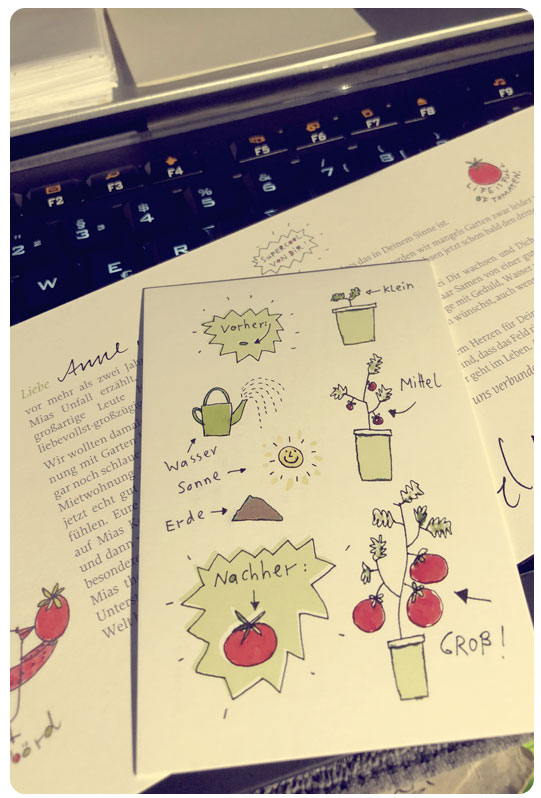 F2
F3
F4
F5
F6
F7
F8
F9
2
3
4
%
5
6
7
W
E
R
LIFE IS FULL
OF TOMATOES
SUPERCOOL
VON DIR
das in Deinem Sinne ist.
rden wir mangels Garten zwar leider
sen jetzt schon bald den
ei Dir wachsen und
aar Samen von einer
ge mit Geduld, Wasser
wünschst, auch
em Herzen für
nd, dass das Feld
geht im Leben,
uns verbunde
Liebe Anne
vor mehr als zwei Jah
Mias Unfall erzählt,
großartige Leute
liebevollst-großzügig
Wir wollten damal
nung mit Garten
gar noch schlaue
Mietwohnung
jetzt echt gut
fühlen. Eure
auf Mias K
und dann
besondere
Mias th
Unterst
Welt
örd
Vorher:
Klein
Mittel
Wasser
Sonne
Erde
Nachher:
GROß!